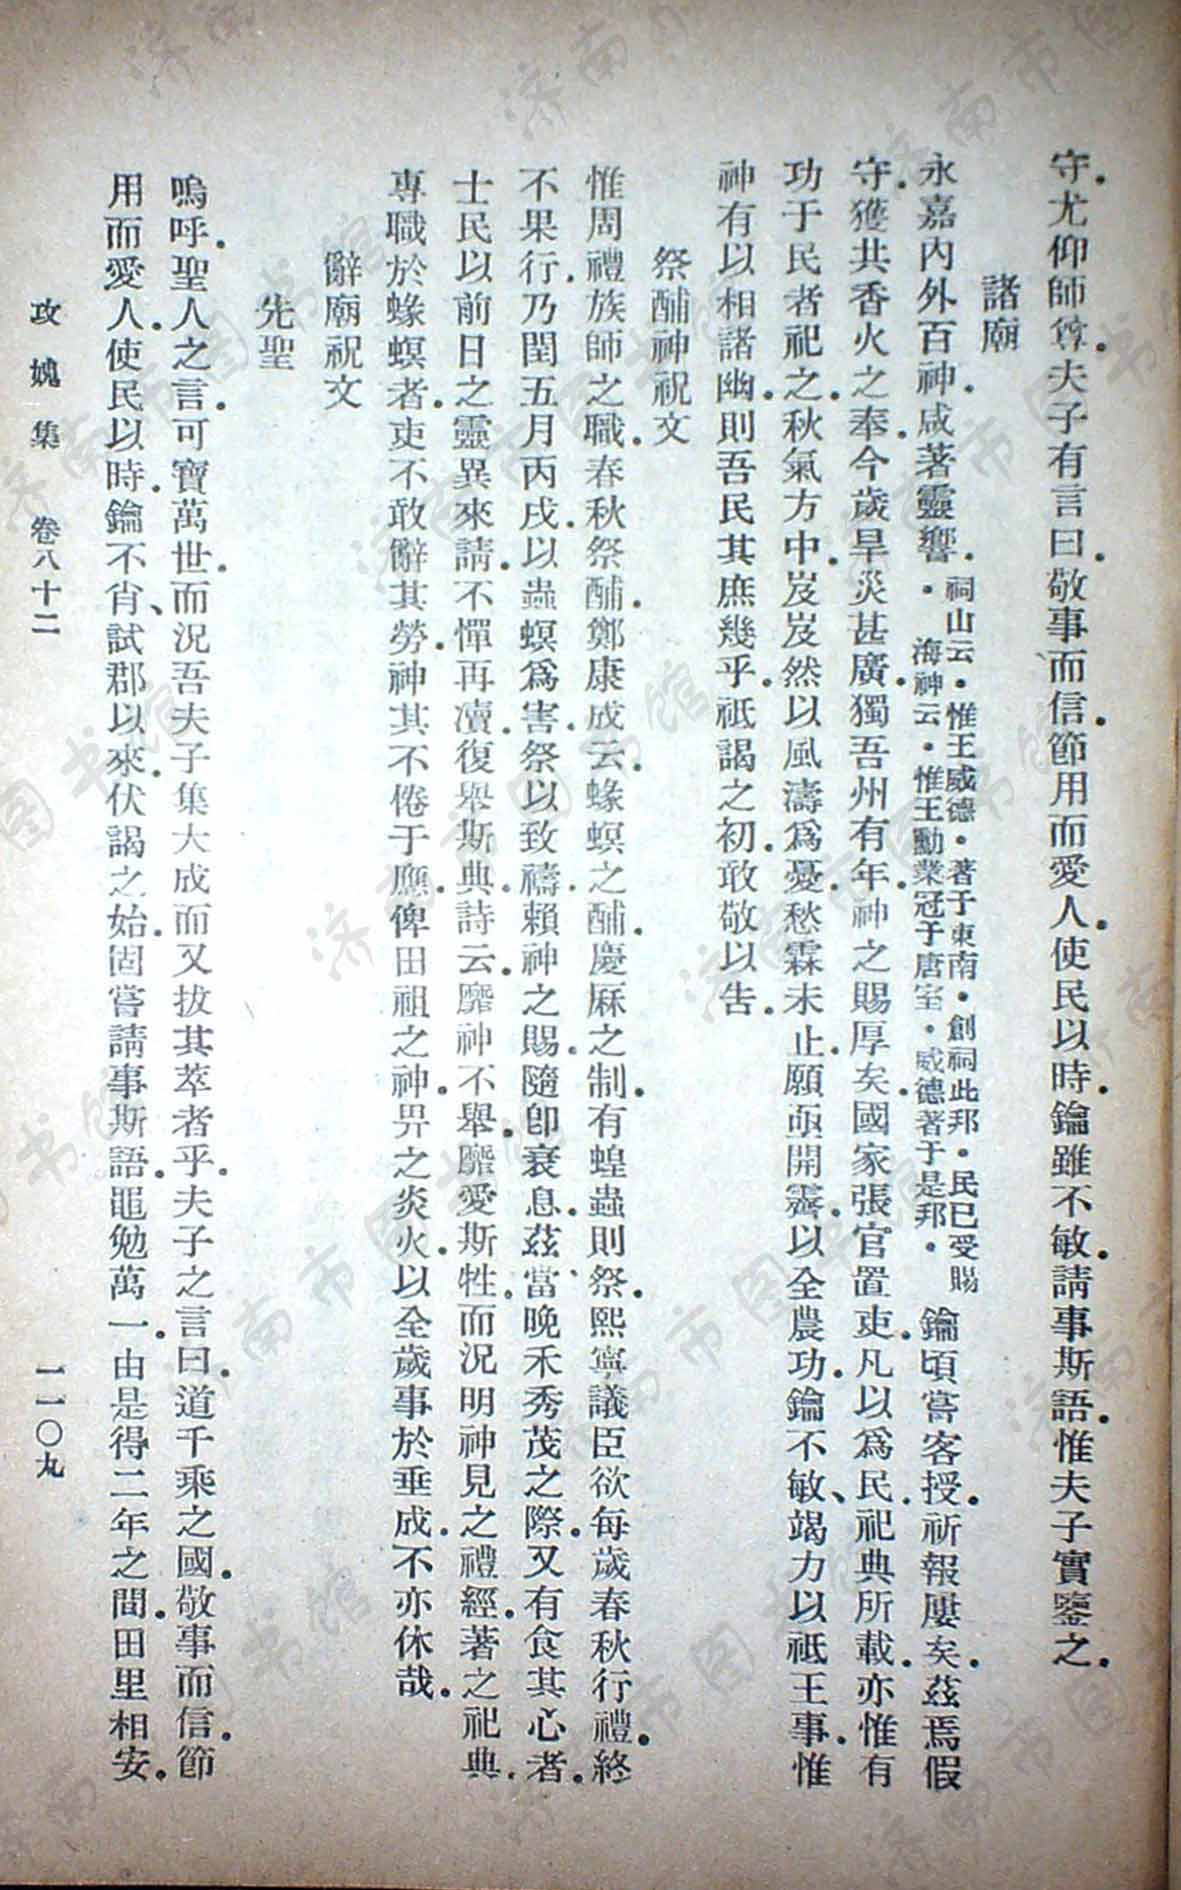 守。尤仰師尊。夫子有言曰。敬事而信。節用而愛人。使民以時。鑰雖不敏。請事斯語。惟夫子實鑒之。
諸廟
永嘉內外百神。咸著靈響。祠山云。惟王威德。著于東南。創祠此邦。民已受賜。海神云。惟王勳業冠于唐室。威德著于是邦。鑰頃嘗客授。祈報屢矣。茲焉假
守。獲共香火之奉。今歲旱災甚廣。獨吾州有年。神之賜厚矣。國家張官置吏。凡以爲民。祀典所載。亦惟有
功于民者祀之。秋氣方中。岌岌然以風濤爲憂。愁霖未止。願亟開霽。以全農功。鑰不敏、竭力以祗王事。惟
神有以相諸幽。則吾民其庶幾乎。祗謁之初。敢敬以告。
祭酺神祝文
惟周禮族師之職。春秋祭酺。鄭康成云。蝝螟之酺。慶厤之制。有蝗蟲則祭。熙寧議臣欲每歲春秋行禮。終
不果行。乃閏五月丙戌。以蟲螟爲害。祭以致禱。賴神之賜。隨卽衰息。茲當晚禾秀茂之際。又有食其心者。
士民以前日之靈異來請。不憚再瀆。復舉斯典。詩云。靡神不舉。靡愛斯牲。而況明神見之禮經。著之祀典。
專職於蝝螟者。吏不敢辭其勞。神其不倦于應。俾田祖之神。畀之炎火。以全歲事於垂成。不亦休哉。
辭廟祝文
先聖
嗚呼。聖人之言。可寶萬世。而況吾夫子集大成而又拔其萃者乎。夫子之言曰。道千乘之國。敬事而信。節
用而愛人。使民以時。鑰不肖、試郡以來。伏謁之始。固嘗請事斯語。黽勉萬一。由是得二年之間。田里相安。
攻媿集 卷八十二 一一〇九
济南市图书馆